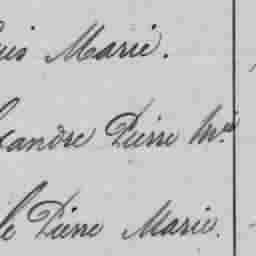 uis Marie.
xandre Pierre M.ie
le Pierre Marie.